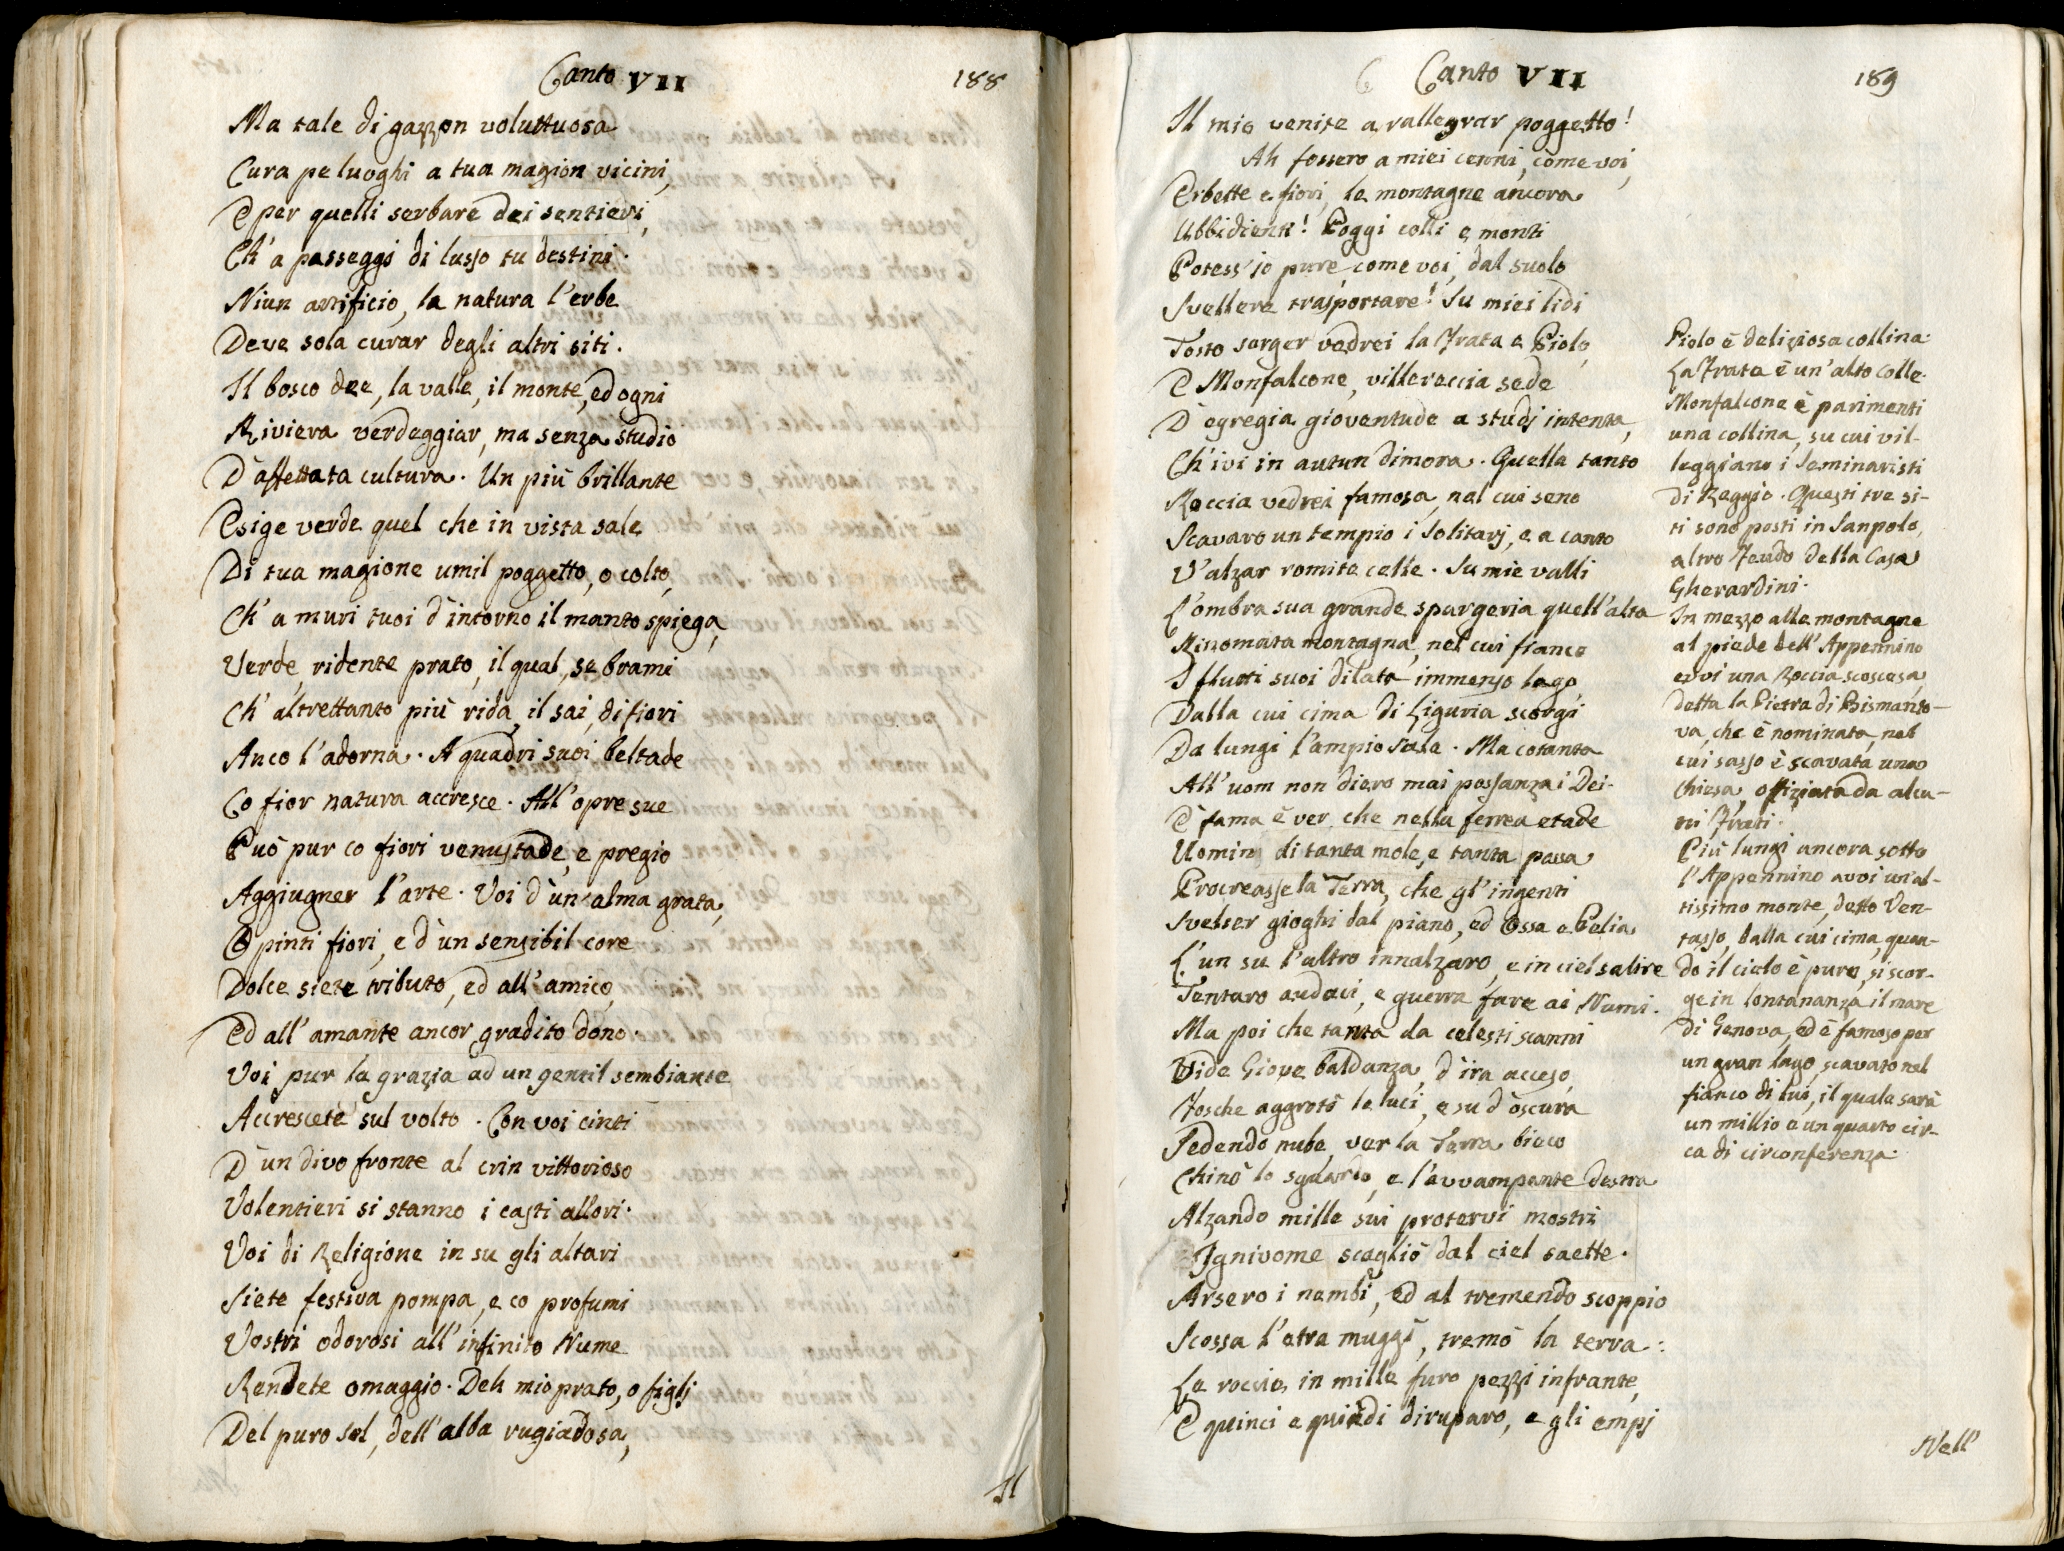 Canto VII
188
Ma tale di gazzon voluttuosa
Cura pe luoghi a tua magion vicini,
E per quelli serbare dei sentieri,
Ch'a passeggi di lusso tu destini.
Niun artificio, la natura l'erbe
Deve sola curar degli altri siti.
Il bosco dee, la valle, il monte, ed ogni
Riviera verdeggiar, ma senza studio
D'affettata cultura. Un più brillante
Esige verde quel che in vista sale
Di tua magione umil poggetto, o colto,
Ch'a muri tuoi d'intorno il manto spiega,
Verde, ridente prato, il qual, se brami
Ch'altrettanto più rida, il sai, di fiori
Anco l'adorna. A quadri suoi beltade
Co fior natura accresce. All'opre sue
Può pur co fiori venustade, e pregio
Aggiugner l'arte. Voi d'un'alma grata,
O pinti fiori, e d'un sensibil core
Dolce siete tributo, ed all'amico,
Ed all'amante ancor gradito dono.
Voi pur la grazia ad un gentil sembiante
Accrescete sul volto. Con voi cinti
D'un divo fronte al crin vittorioso
Volentieri si stanno i casti allori.
Voi di Religione in su gli altari
Siete festiva pompa, e co profumi
Vostri odorosi all'infinito Nume
Rendete omaggio. Deh mio prato, o figlj
Del puro sol, dell'alba rugiadosa,
Il
Canto VII
189
Il mio venite a rallegrar poggetto!
Ah fossero a miei cenni, come voi,
Erbette e fiori, le montagne ancora
Ubbidienti! Poggi colli e monti
Potess'io pure, come voi, dal suolo
Svellere trasportare! Su miei lidi
Tosto sorger vedrei la Frata e Piolo,
E Monfalcone, villereccia sede
D'egregia gioventude a studj intenta,
Ch'ivi in autun dimora. Quella tanto
Roccia vedrei famosa, nel cui seno
Scavaro un tempio i Solitarj, e a canto
V'alzar romite celle. Su mie valli
L'ombra sua grande spargeria quell'alta
Rinomata montagna, nel cui fianco
I flutti suoi dilata immenso lago,
Dalla cui cima di Liguria scorgi
Da lungi l'ampio sale. Ma cotanta
All'uom non diero mai possanza i Dei.
E fama è ver, che nella ferrea etade
Uomini di tanta mole, e tanta possa
Procreasse la Terra, che gl'ingenti
Svelser gioghi dal piano, ed Ossa e Pelia
L'un su l'altro innalzaro, e in ciel salire
Tentaro audaci, e guerra fare ai Numi.
Ma poi che tanta da celesti scanni
Vide Giove baldanza, d'ira acceso,
Fosche aggrotò le luci, e su d'oscura
Sedendo nube, ver la Terra bieco
Chinò lo sguardo, e l'avvampante destra
Alzando mille sui protervi mostri
Ignivome scagliò dal ciel saette.
Arsero i nembi, ed al tremendo scoppio
Scossa l'etra muggì, tremò la terra:
Le roccie in mille furo pezzi infrante,
E quinci e quindi diruparo, e gli empj
Nell'
Piolo è deliziosa collina.
La Frata è un'alto colle.
Monfalcone è parimenti
una collina, su cui vil-
leggiano i Seminaristi
di Reggio. Questi tre si-
ti sono posti in Sanpolo,
altro Feudo della Casa
Gherardini.
In mezzo alle montagne
al piede dell'Appennino
evvi una Roccia scoscesa,
detta la Pietra di Bismanto-
va, che è nominata, nel
cui sasso è scavata una
Chiesa, offiziata da alcu-
ni Frati.
Più lungi ancora sotto
l'Appennino avvi un'al-
tissimo monte, detto Ven-
tasso, dalla cui cima, quan-
do il cielo è puro, si scor-
ge in lontananza il mare
di Genova, ed è famoso per
un gran lago, scavato nel
fianco di lui, il quale sarà
un millio e un quarto cir-
ca di circonferenza.